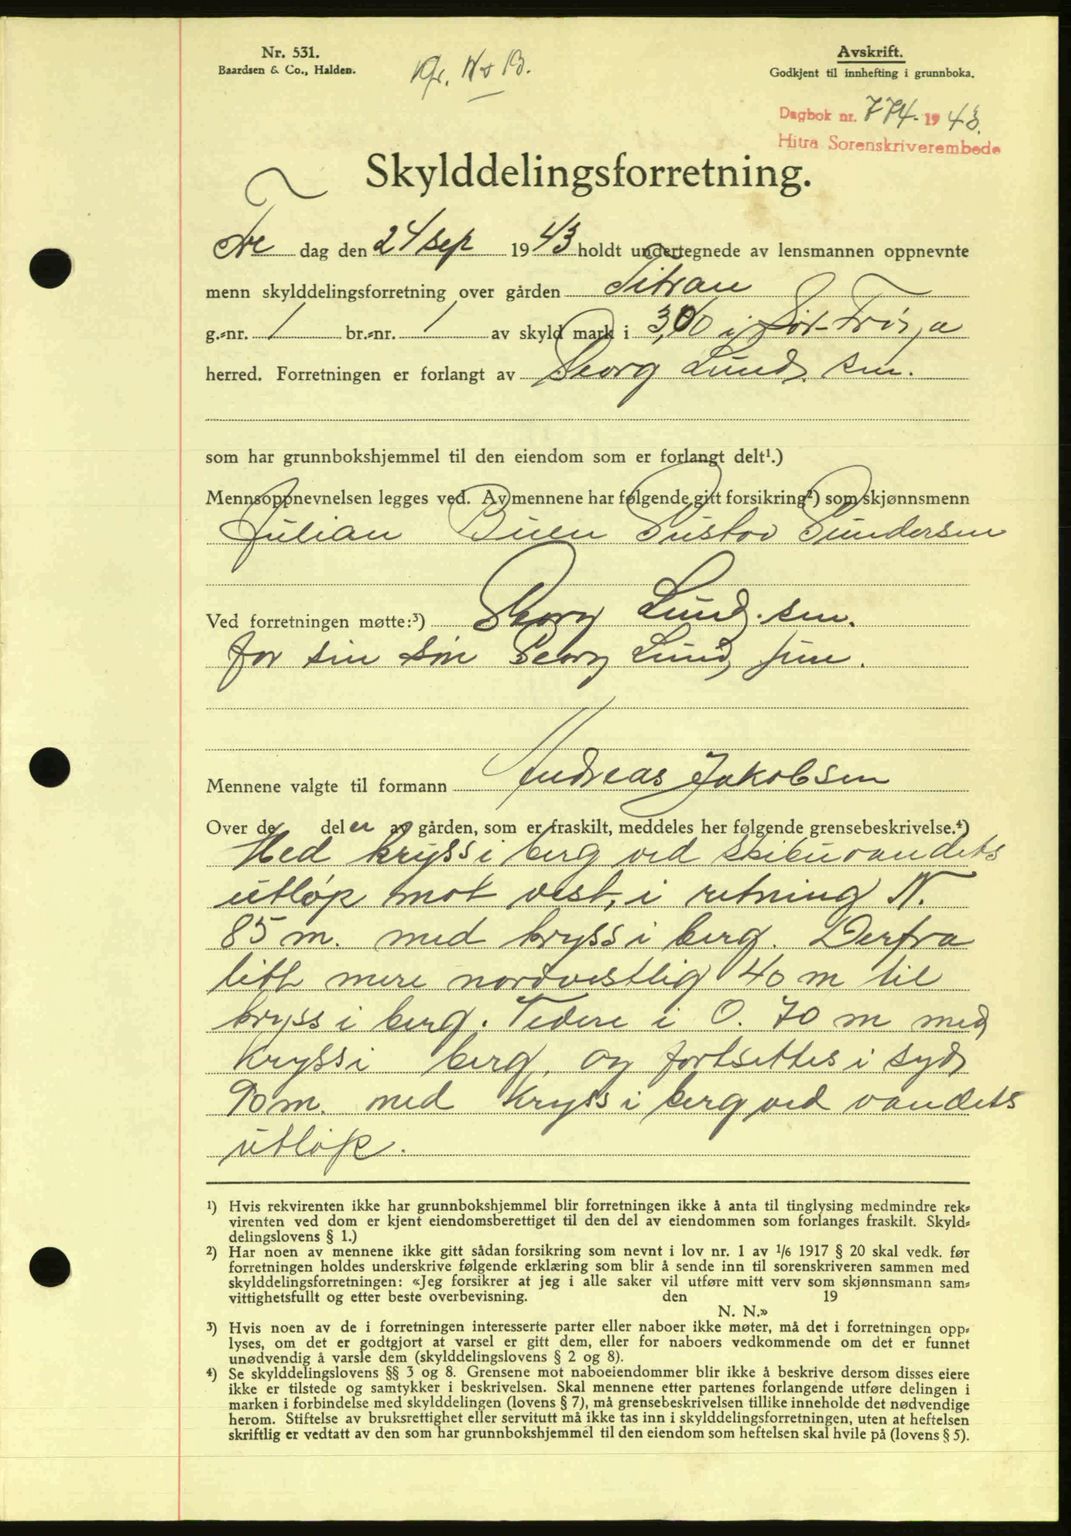 Nr. 531.
Baardsen & Co., Halden.
Avskrift.
Godkjent til innhefting i grunnboka.
Dagbok nr. 774. 1943.
Hitra Sorenskriverembede
Skylddelingsforretning.
Fre dag den 24 sep 1943 holdt undertegnede av lensmannen oppnevnte
menn skylddelingsforretning over gården Titran
g.-nr. 1 br.-nr. 1 av skyld mark i 3,00 i Sør-Frøya
herred. Forretningen er forlangt av Georg Lund. sen.
som har grunnbokshjemmel til den eiendom som er forlangt delt¹.)
Mennsoppnevnelsen legges ved. Av mennene har følgende gitt forsikring²) som skjønnsmenn
Julian Buen Gustav Gundersen
Ved forretningen møtte:³) Georg Lund. sen.
for sin søn Georg Lund, jun.
Mennene valgte til formann Andreas Jakobsen
Over de del er av gården, som er fraskilt, meddeles her følgende grensebeskrivelse.⁴)
Med kryss i berg ved vandets
utløp mot vest, i retning N.
85 m. med kryss i berg. Derfra
litt mere nordvestlig 40 m til
kryss i berg. Videre i O. 70 m med
kryss i berg, og fortsettes i syd
90 m. med kryss i berg ved vandets
utløp.
¹) Hvis rekvirenten ikke har grunnbokshjemmel blir forretningen ikke å anta til tinglysing medmindre rek-
virenten ved dom er kjent eiendomsberettiget til den del av eiendommen som forlanges fraskilt. Skyld-
delingslovens § 1.)
²) Har noen av mennene ikke gitt sådan forsikring som nevnt i lov nr. 1 av ¹/6 1917 § 20 skal vedk. før
forretningen holdes underskrive følgende erklæring som blir å sende inn til sorenskriveren sammen med
skylddelingsforretningen: «Jeg forsikrer at jeg i alle saker vil utføre mitt verv som skjønnsmann sam-
vittighetsfullt og etter beste overbevisning. den 19
N. N.»
³) Hvis noen av de i forretningen interesserte parter eller naboer ikke møter, må det i forretningen opp-
lyses, om det er godtgjort at varsel er gitt dem, eller for naboers vedkommende om det er funnet
unødvendig å varsle dem (skylddelingslovens § 2 og 8).
⁴) Se skylddelingslovens §§ 3 og 8. Grensene mot naboeiendommer blir ikke å beskrive dersom disses eiere
ikke er tilstede og samtykker i beskrivelsen. Skal mennene etter partenes forlangende utføre delingen i
marken i forbindelse med skylddelingen (lovens § 7), må grensebeskrivelsen tillike inneholde det nødvendige
herom. Stiftelse av bruksrettighet eller servitutt må ikke tas inn i skylddelingsforretningen, uten at heftelsen
skriftlig er vedtatt av den som har grunnbokshjemmel til den eiendom som heftelsen skal hvile på (lovens § 5).